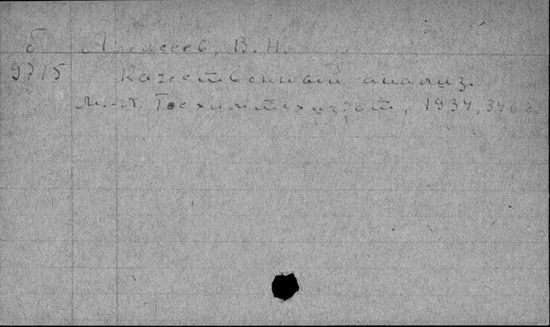 б Алексеев, В.Н.
9715 Качественный анализ.
М.-Л. Госхимтехиздат, 1934, 376 с.